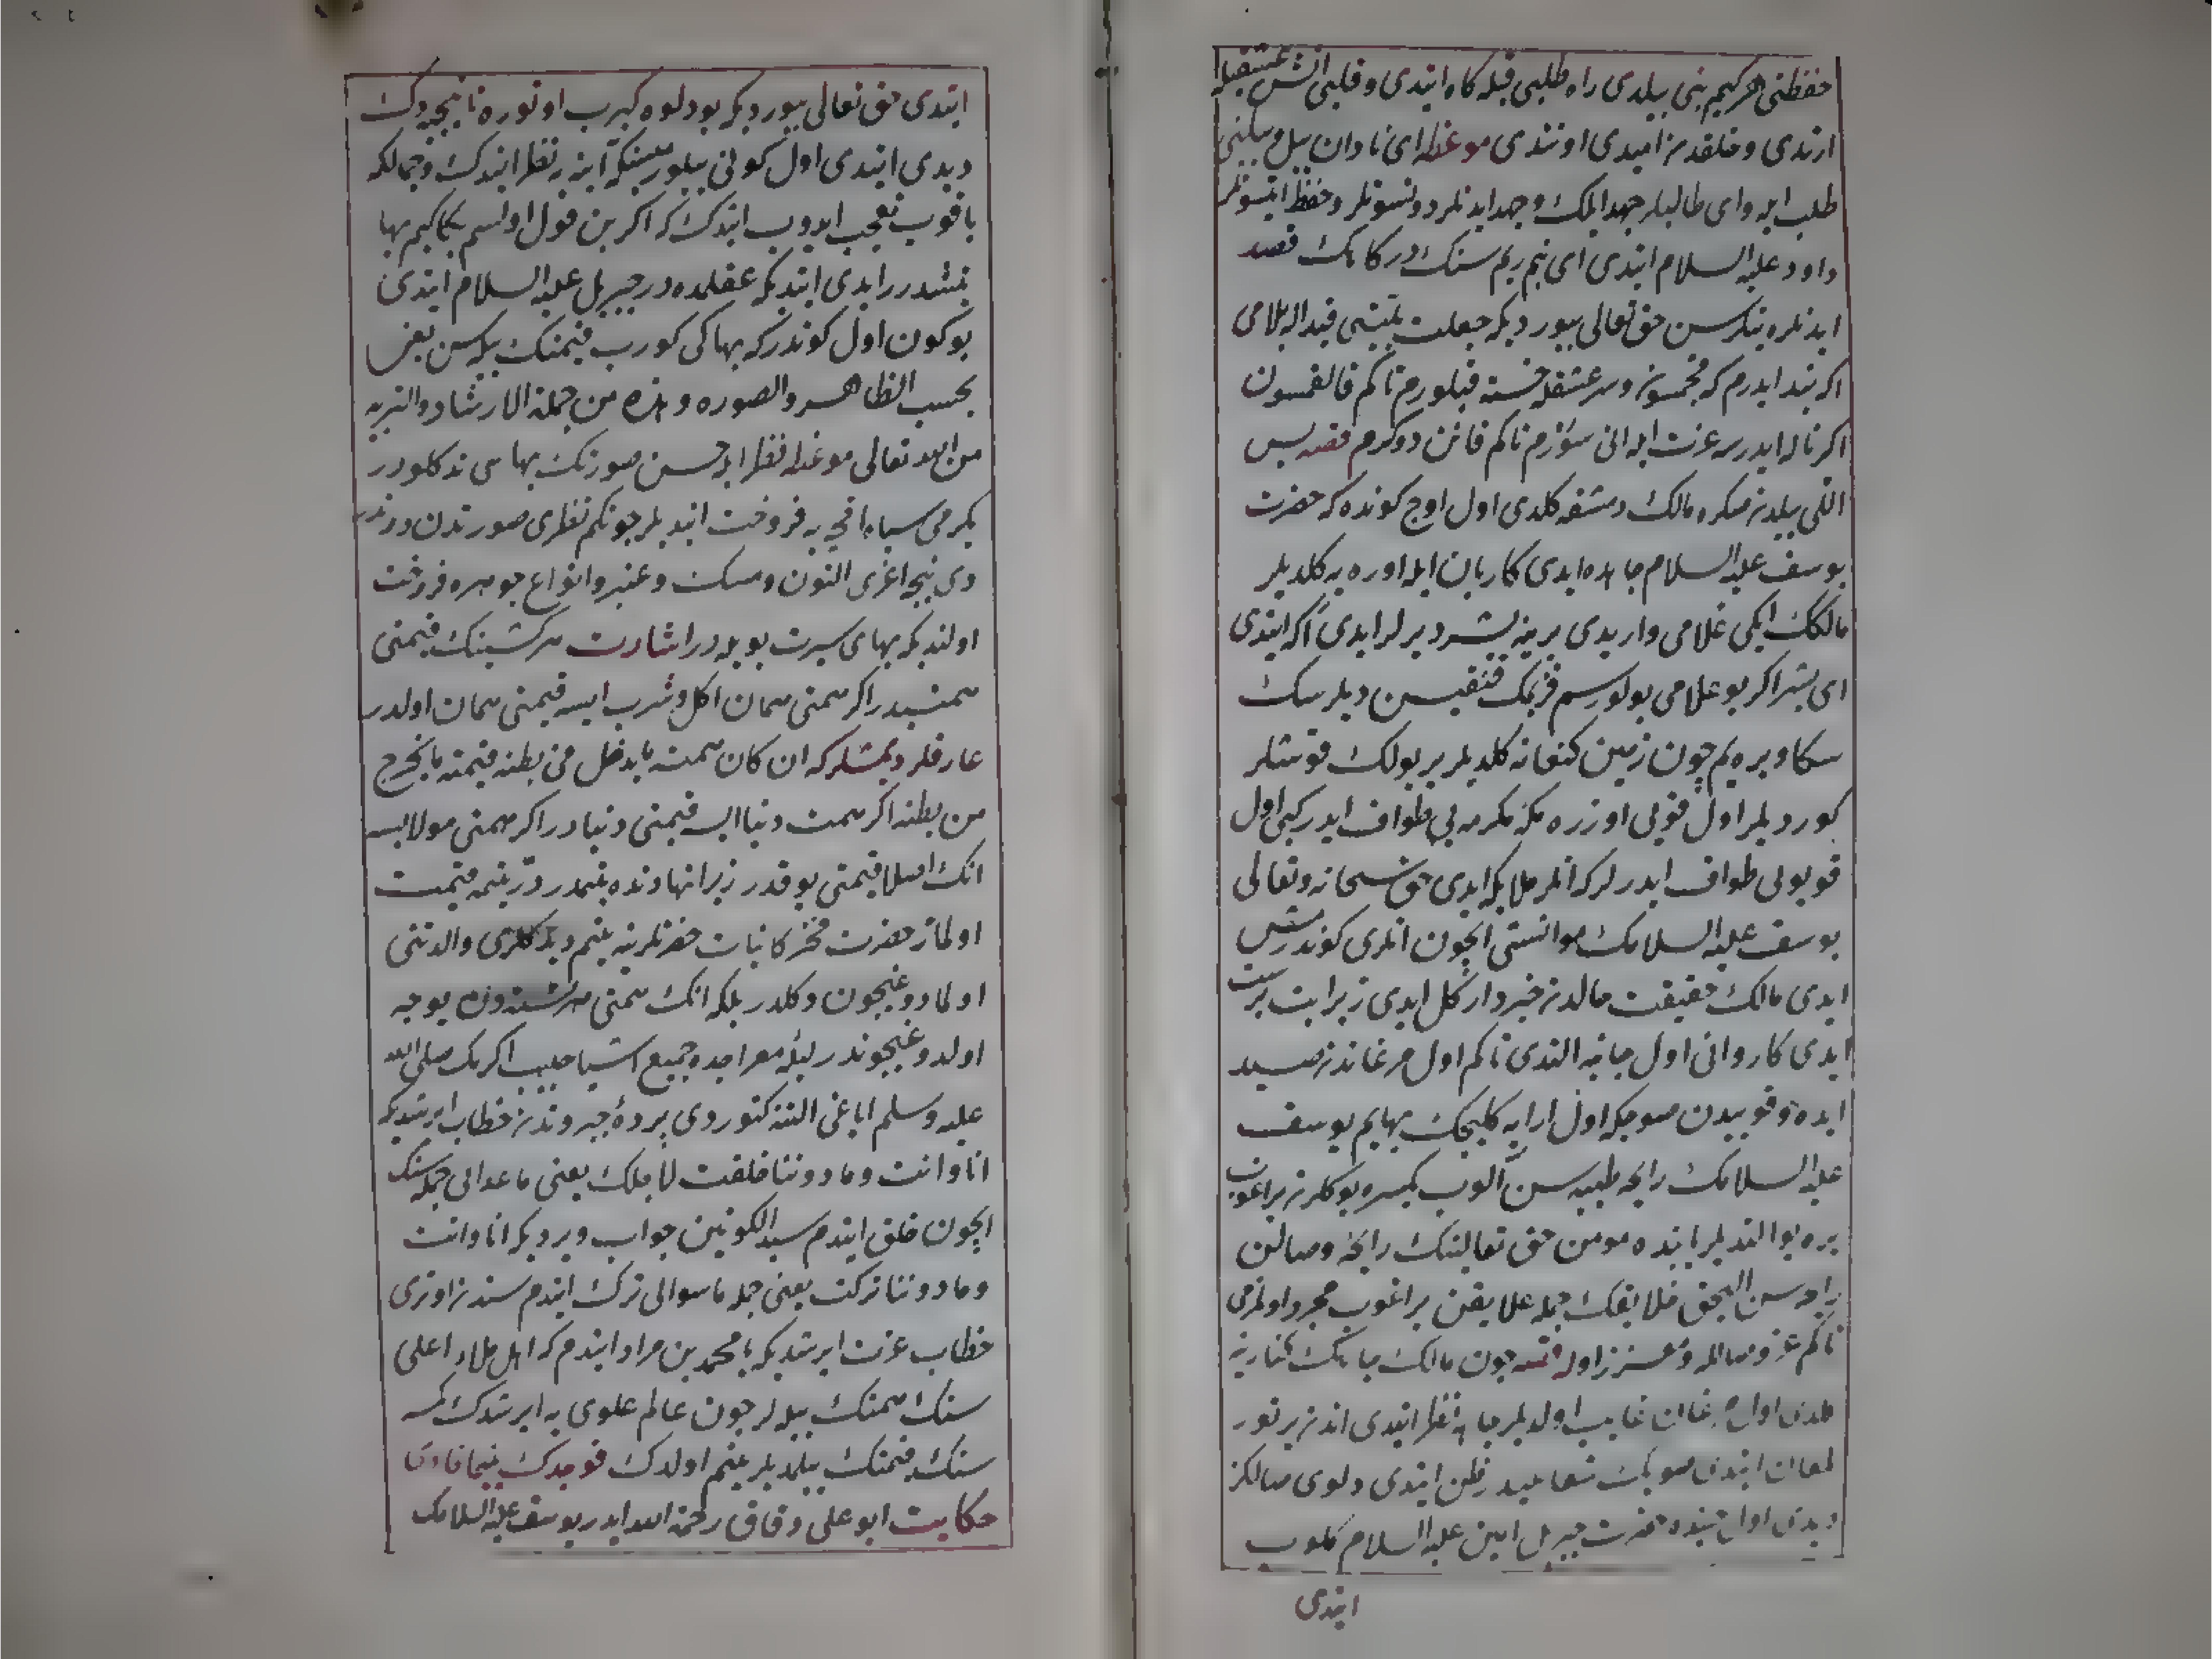 حفظنی هر کیم بنی بیلدی راه طلبی قبله کاه ایتدی و قلبی آتش عشقیله
ارتدی و خلقدن امیدی اونتدی موعظه ای نادان بیل سکنی
طلب ایله وای طالبلر جهد ایلک وجهد ایدنلر دوتسونلر وحفظ ایتسونلر
داود علیه السلام ایتدی ای بنم ربم سنک درکاهک قصد
ایدنلره نیلرسن حق تعالی بیوردیکه جعلت بیتی قید البلا می
اکر بند ایدرم که محمسون وسر عشقله خسته قیلورم تاکم قالقمسون
اکر ناله ایدرسه عزت ایله انی سؤزم تاکم قانن دوکرم قصه پس
اللی ییلدن صکره مالک دمشقه کلدی اول اوج کونده که حضرت
یوسف علیه السلام چاهده ایدی کاربان ایله اورایه کلدیلر
مالکک ایکی غلامی واریدی برینه بشر دیرلر ایدی اکا ایتدی
ای بشر اکر بو غلامی بولورسم قزمک قنقیسن دیلرسک
سکا ویره یم چون زمین کنعانه کلدیلر بر بولک قوشلر
کوردیلر اول قویی اوزره مکه مکرمه یی طواف ایدر کبی اول
قویویی طواف ایدرلر که انلر ملایکه ایدی حق سبحانه وتعالی
یوسف علیه السلامک موانستی ایچون انلری کوندرمش
ایدی مالک حقیقت حالدن خبردار دکل ایدی زیرا بت پرست
ایدی کاروانی اول جانبه الندی تاکم اول مرغاندن صید
ایده وقوییدن صوچکه اول ارایه کلیجک بهایم یوسف
علیه السلامک رایحه طیبه سن آلوب یوکلرن براغوب
یره یوالندیلر یا بنده مومن حق تعالینک رایحه وصالن
رایحه سن الیجق خلایقک جمله علایقن براغوب مجرد اولمزمی
تاکم عز وصالله معزز اوله قصه چون مالک چاهک کنارینه
کلدی اول مرغان غایب اولدیلر چاهه نظر ایتدی اندن بر نور
لمعان ایتدی صویک شعاعیدر ظن ایتدی دلوی صالکز
دیدی اول حینده حضرت جبریل امین علیه السلام کلوب
ایتدی
ایتدی حق تعالی بیوردیکه بو دلوه کیرب اوتوره تا نیجه دک
دیدی ایتدی اول کونی بیلورمیسنکه آینه یه نظر ایتدک وجمالکه
باقوب تعجب ایدوب ایتدک که اکر بن قول اولسم بکا کیم بها
یتشدرر ایدی ایتدیکه عقلمده در جبریل علیه السلام ایتدی
بوکون اول کوندر که بهاکی کورب قیمتک بیله سن یعنی
بحسب الظاهر والصوره وهذه من جملة الارشاد والتربیه
من الله تعالی موعظه نظر ایله حسن صورتک بهاسی نه کلودر
یکرمی سیاه اقچه یه فروخت ایتدیلر چونکم نظری صورتدن دوندر
دی نیجه اغری التون ومسک وعنبر وانواع جوهره فروخت
اولندیکه بهای سیرت بویله در اشارت هر کشینک قیمتی
همتیدر اکر همتی همان اکل وشرب ایسه قیمتی همان اولدر
عارفلر دیمشلر که ان کان همته ما یدخل فی بطنه قیمته ما یخرج
من بطنه اکر همت دنیا ایسه قیمتی دنیادر اکر همتی مولا ایسه
انک اصلا قیمتی یوقدر زیرا نهادنده یتیمدر در یتیمه قیمت
اولماز حضرت مفخر کاینات حضرتلرینه یتیم دیدکلری والدتنی
اولمادوغیچون دکلدر بلکه انک همتی هر نسنه دن یوجه
اولدوغیچوندر لیلۀ معراجده جمیع اشیا حبیب اکرمک صلی الله
علیه وسلم ایاغی التنه کتوردی پردۀ جبروتدن خطاب ایرشدیکه
انا وانت وما دوننا خلقت لاجلک یعنی ماعدایی جمله سنک
ایچون خلق ایتدم سید الکونین جواب ویردیکه انا وانت
وما دوننا ترکت یعنی جمله ماسوایی ترک ایتدم سندن اوتری
خطاب عزت ایرشدیکه یا محمد بن مراد ایتدم که اهل ملاء اعلی
سنک همتک بیله لر چون عالم علوی یه ایرشدک کمسه
سنک قیمتک بیلمدیلر یتیم اولدک فوجدک یتیما فاوی
حکایت ابو علی دقاق رحمة الله ایدر یوسف علیه السلامک